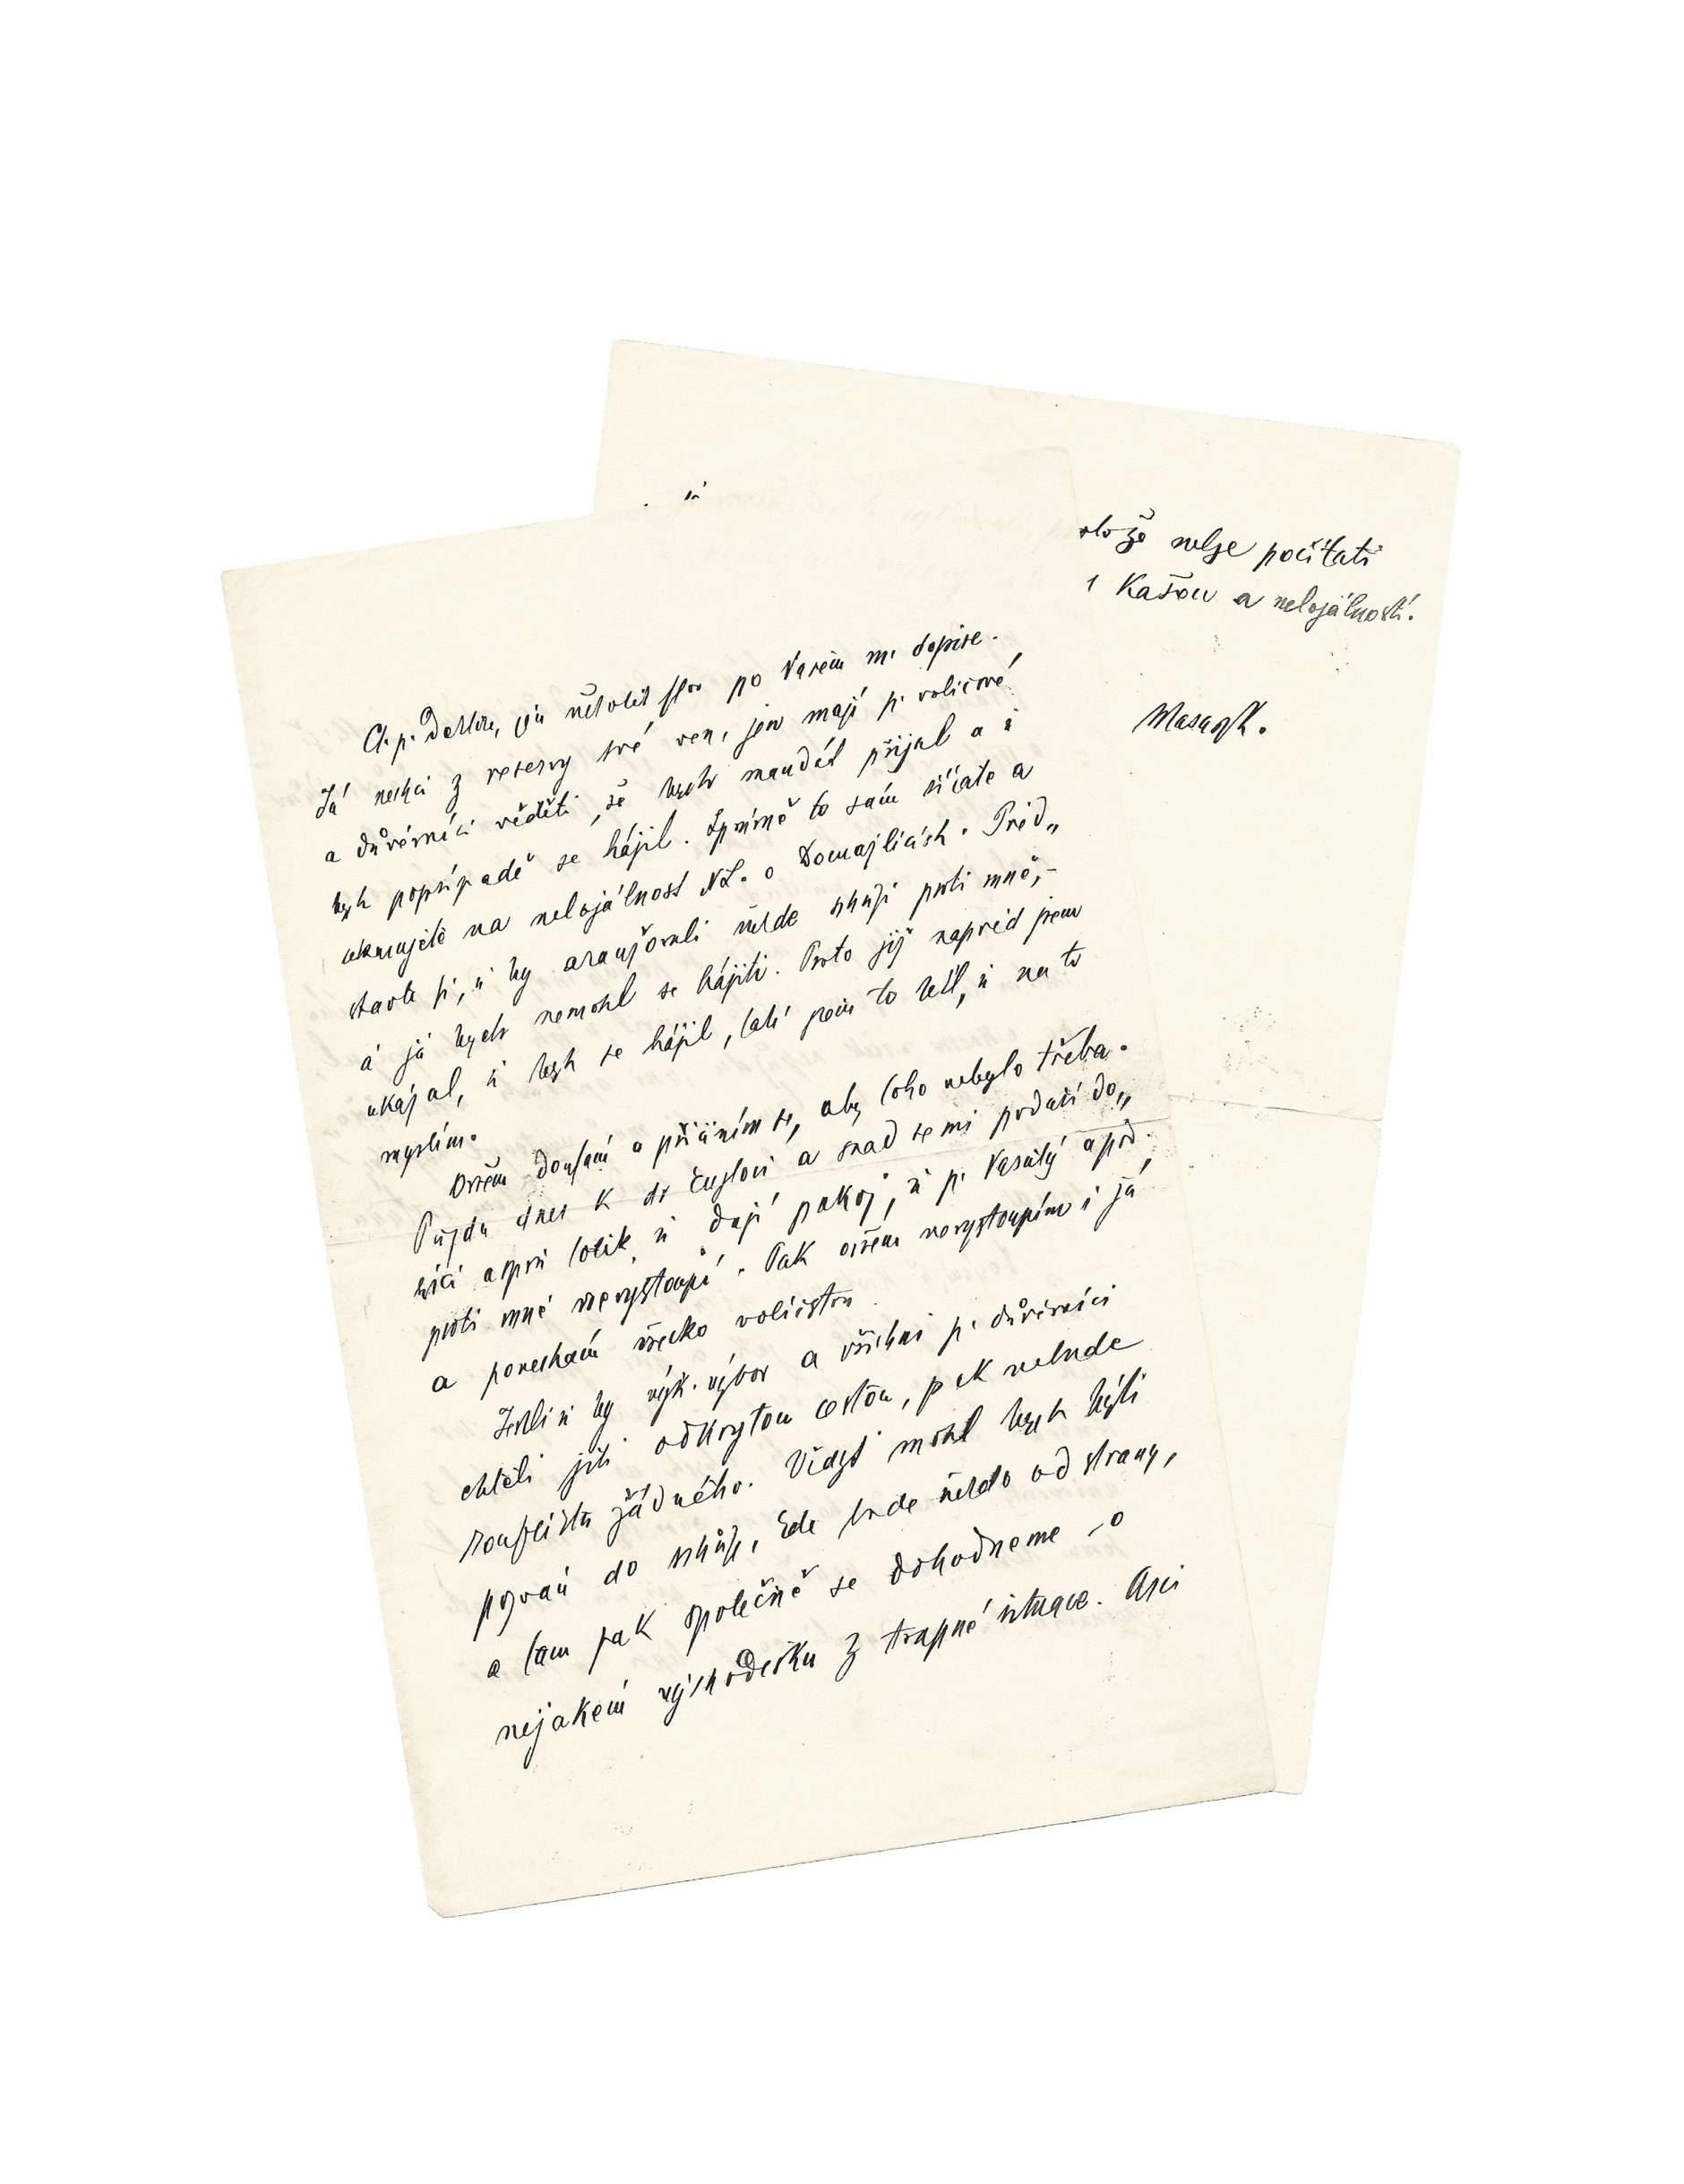 Ct. p. Doktore, jen několik slov po Vašem m. dopise.
Já nechci z reservy své ven, jen mají p. voličové
a důvěrníci věděti, že bych mandát přijal a i
bych popřípadě se hájil. Zprvně to sám cítíte a
ukazujete na nelojálnost NL. o Domažlicích. Před„
stavte si, že by aranžovali někde schůzi proti mně, –
a já bych nemohl se hájiti. Proto již napřed jsem
ukázal, že bych se hájil, také jsem to řekl, že na to
myslím.
Ovšem doufám a přičiním se, aby toho nebylo třeba.
Půjdu dnes k dr Englovi a snad se mi podaří do„
cíliti aspoň tolik, že dají pokoj, že p. Vašatý a pod.
proti mně nevystoupí. Pak ovšem nevystoupím i já
a ponechám všecko voličstvu.
Jestliže by výk. výbor a všichni p. důvěrníci
chtěli jíti odkrytou cestou, pak nebude
konfliktu žádného. Vždyť mohl bych býti
pozván do schůze, kde bude někdo od strany,
a tam pak společně se dohodneme o
nějakém východisku z trapné situace. Arci
nelze počítati
Kašou a nelojálností.
Masaryk.